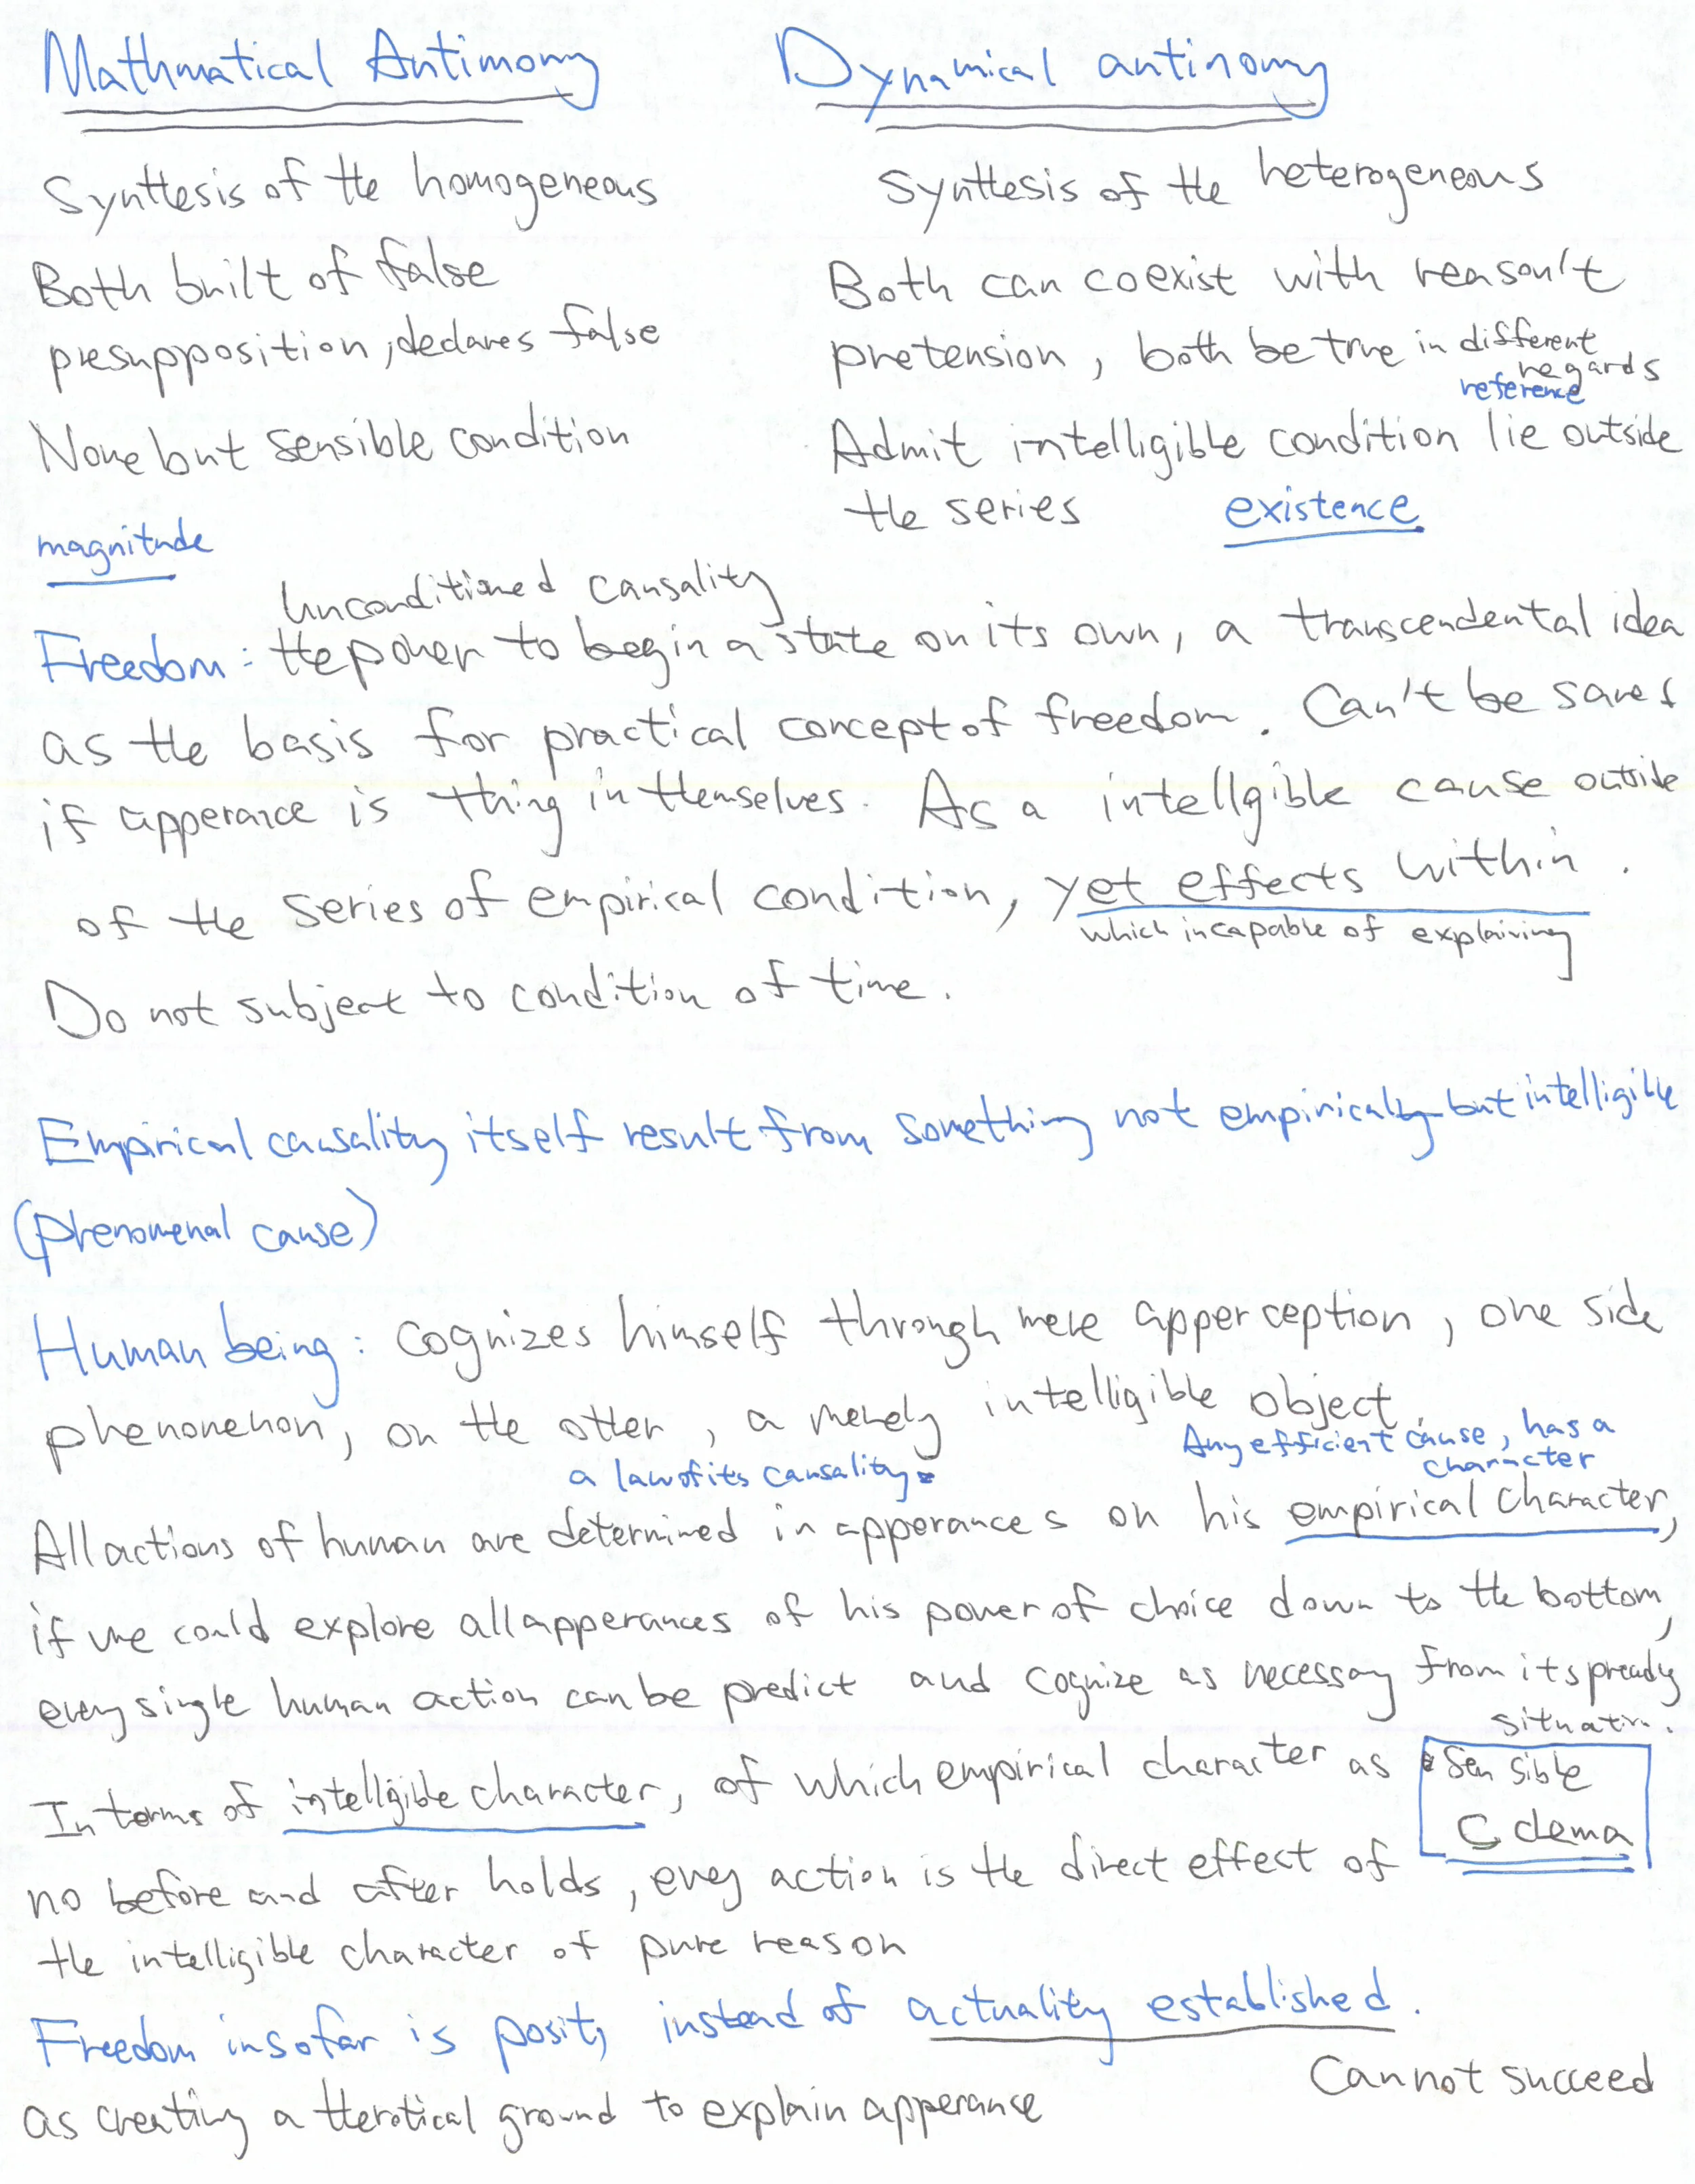 Mathmatical Antimomy
Dynamical antinomy
Synthesis of the homogeneous
Synthesis of the heterogeneous
Both built of false
presupposition, declares false
Both can coexist with reason't
pretension, both be true in different
regards
reference
None but sensible condition
Admit intelligible condition lie outside
the series
existence
magnitude
Unconditioned causality
Freedom: the power to begin a state on its own, a transcendental idea
as the basis for practical concept of freedom. Can't be saved
if apperance is thing in themselves. As a intellgible cause outside
of the series of empirical condition, yet effects within.
which incapable of explaining
Do not subject to condition of time.
Empirical causality itself result from something not empirically but intelligible
(phenomenal cause)
Human being: cognizes himself through mere apperception, one side
phenonenon, on the other, a merely intelligible object.
Any efficient cause, has a
character
a law of its causality
All actions of human are determined in apperances on his empirical character,
if we could explore all apperances of his power of choice down to the bottom,
every single human action can be predict and cognize as necessary from its
situation.
In terms of intellgible character, of which empirical character as sensible
no before and after holds, every action is the direct effect of
the intelligible character of pure reason
Freedom insofar is posit, instead of actuality established.
as creating a therotical ground to explain apperance
Cannot succeed